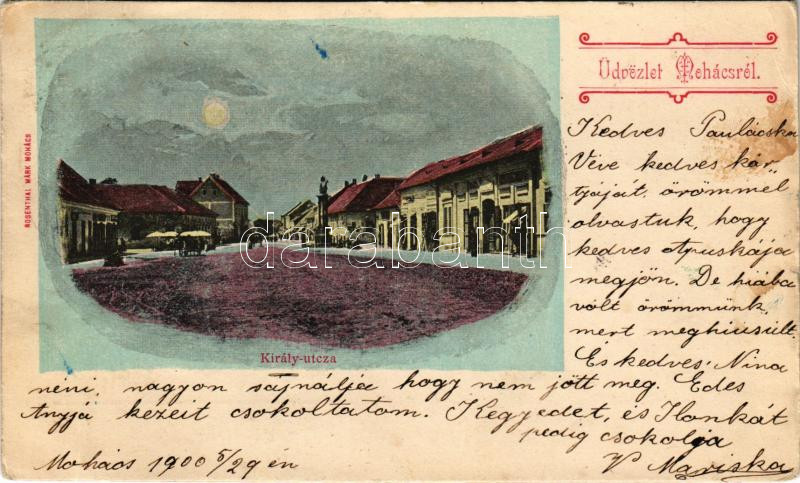 Üdvözlet Mohácsról.
ROSENTHAL MÁRK MOHÁCS
Kedves Paulácska
Véve kedves kár-
tyáját, örömmel
olvastuk, hogy
kedves Apuskája
megjön. De hiába
volt örömmünk,
mert meghiusúlt.
És kedves Nina
Király-utcza
néni, nagyon sajnálja hogy nem jött meg. Édes
Anyjá kezeit csokoltatom. Kegyedet, és Ilonkát
pedig csokolja
Mohács 1900 5/29 én
V Mariska
darabanth